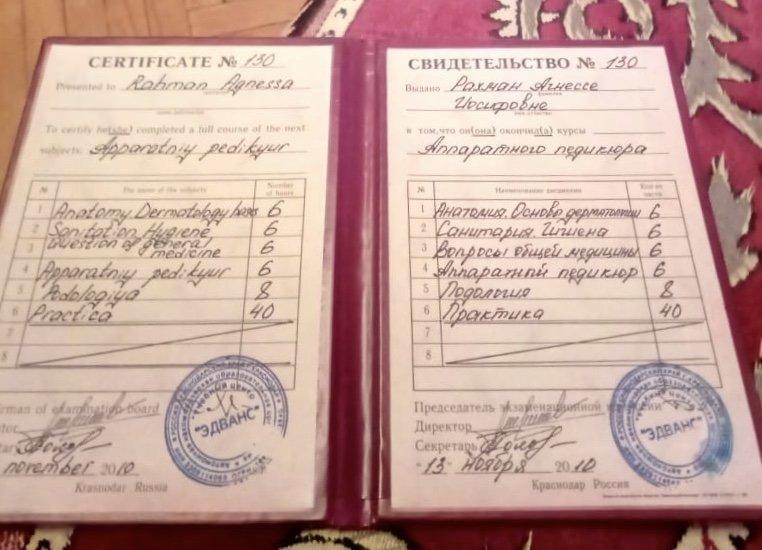 CERTIFICATE № 130
Presented to Rahman Agnessa
To certify he(she) completed a full course of the next
subjects: Apparatniy pedikyur
№ The name of the subjects Number of hours
1 Anatomy. Dermatology bases 6
2 Sanitation Hygiene 6
3 Question of general medicine 6
4 Apparatniy pedikyur 6
5 Podologiya 8
6 Practica 40
7
8
rman of examination board
tor
tar
november 2010
Krasnodar Russia
"ЭДВАНС"
СВИДЕТЕЛЬСТВО № 130
Выдано Рахман Агнессе
фамилия
Иосифовне
имя, отчество
в том, что он(она) окончил(а) курсы
Аппаратного педикюра
№ Наименование дисциплин Кол-во часов
1 Анатомия. Основы дерматологии 6
2 Санитария. Гигиена 6
3 Вопросы общей медицины 6
4 Аппаратный педикюр 6
5 Подология 8
6 Практика 40
7
8
Председатель экзаменационной
Директор
Секретарь
"13" ноября 2010
Краснодар Россия
"ЭДВАНС"